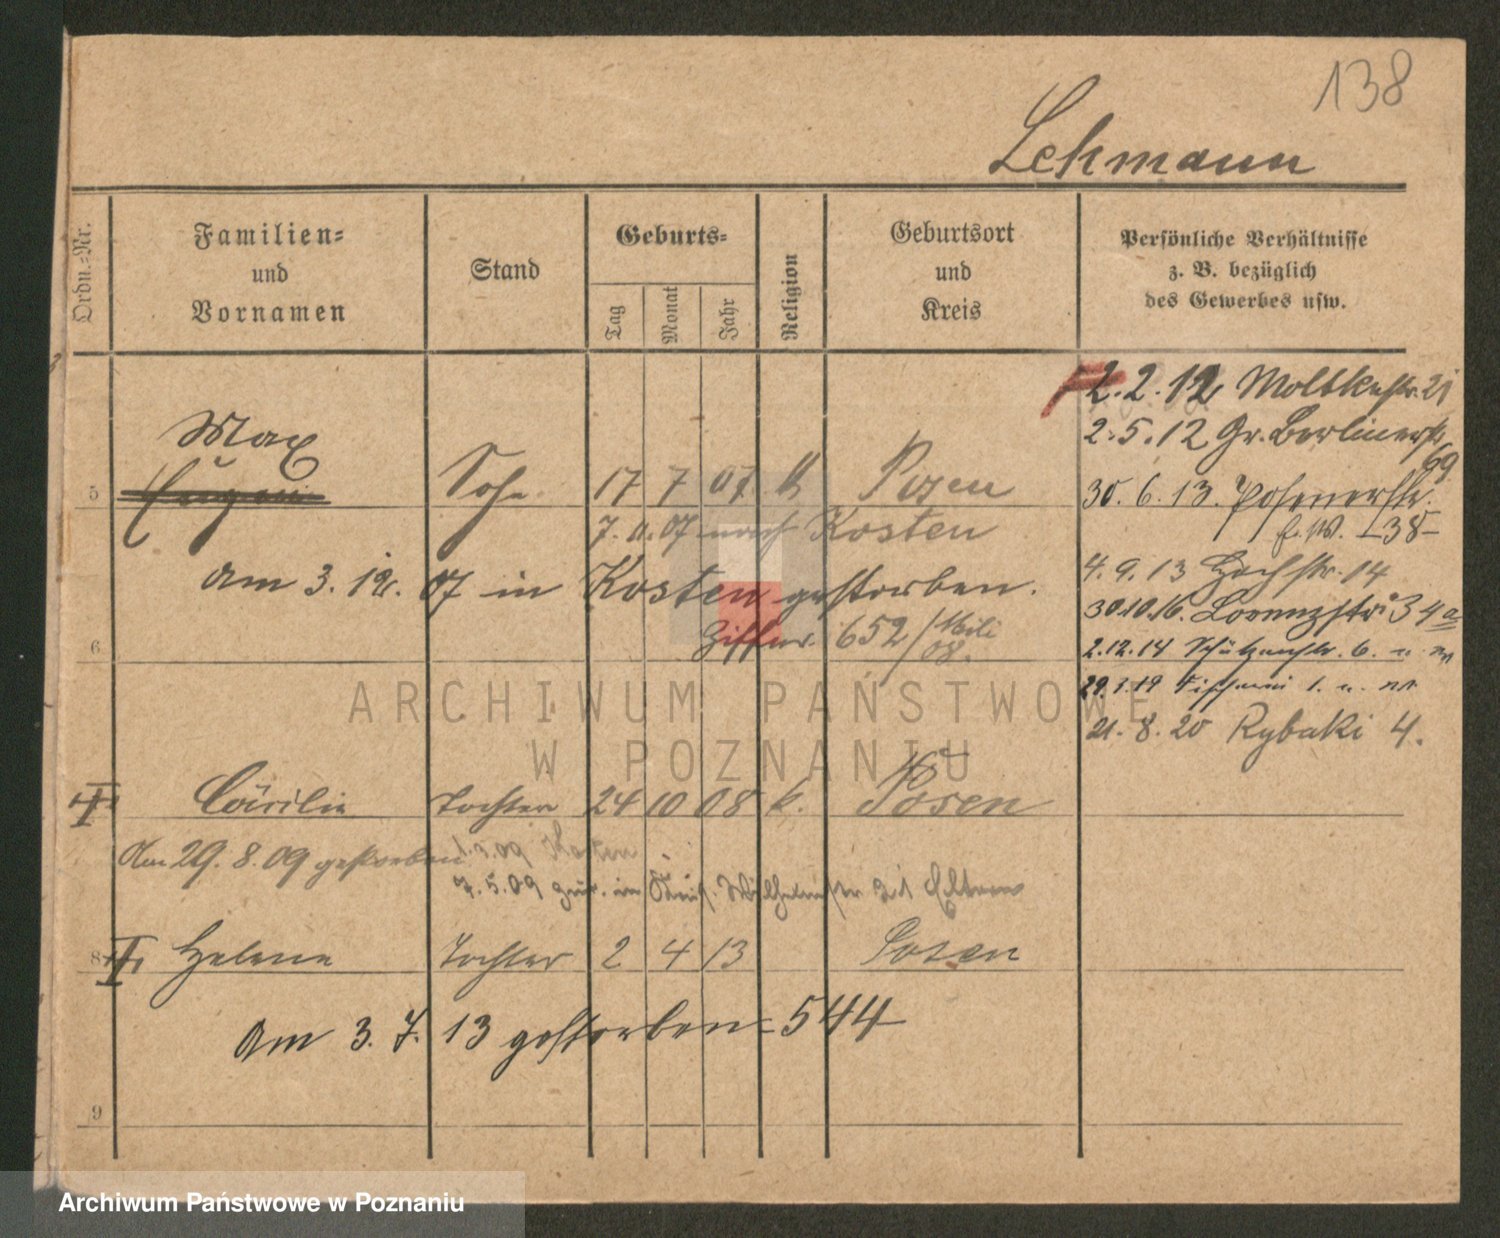 138
Lehmann
Ordn.-Nr.
Familien-
und
Vornamen
Stand
Geburts-
Tag
Monat
Jahr
Religion
Geburtsort
und
Kreis
Persönliche Verhältnisse
z. B. bezüglich
des Gewerbes usw.
2.2.12 Moltkestr. 21
2.5.12 Gr. Berlinerstr.
69
30.6.13. Posenerstr.
38
4.9.13 Hochstr. 14
30.10.16. Lorenzstr. 34a
2.12.14 Schützenstr. 6.
29.3.19 Fischerei 1.
21.8.20 Rybaki 4.
Max
5 Sohn 17 7 07 k Posen
7.11.07 nach Kosten
am 3.12.07 in Kosten gestorben.
6 Ziffer. 652/
08.
ARCHIWUM PAŃSTWOWE
W POZNANIU
Cäcilie Tochter 24 10 08 k. Posen
Am 29.8.09 gestorben
1.3.09 Kosten
7.5.09 zur. in Wilhelmstr 21 Eltern
8 Helene Tochter 2 4 13 Posen
am 3.7.13 gestorben - 544
9
Archiwum Państwowe w Poznaniu